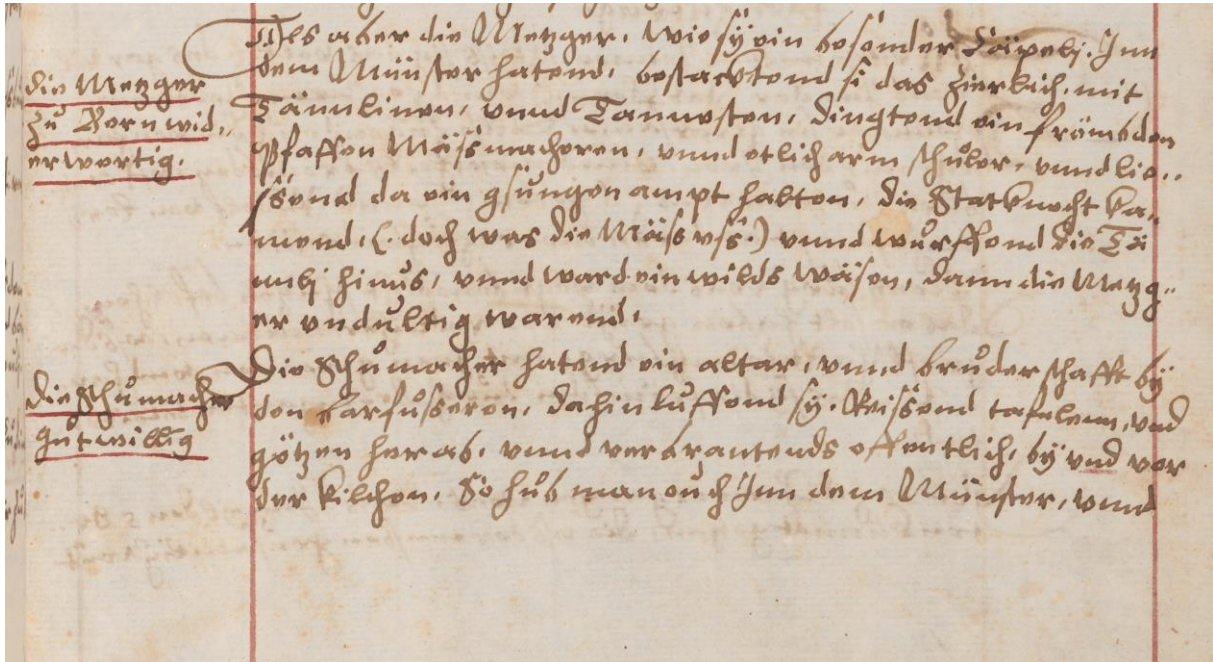 Als aber die Metzger, wie sÿ ein besonder Cäpelj, Jnn
dem Münster hatend, bestacktend si das zierlich, mit
die Metzger
zu Bern wid„
erwertig.
Tännlinen, vnnd Tannesten, dingtend ein frömbden
Pfaffen Mäss macheren, vnnd etlich arm schůler, vnnd lie„
ssend da ein gsungen ampt halten, die Statknecht ka„
mend, (. doch was die Mäss vss .) vnnd wurffend die Tä
nnlj hinus, vnnd ward ein wilds wäsen, dann die Metzg„
er vndultig warend,
Die Schůmacher hatend ein altar, vnnd brůderschafft bÿ
die Schůmacher
gůtwillig
den Barfůsseren, dahin luffend sÿ, Rissend tafelenn, vnd
götzen herab, vnnd verbrantends offentlich, bÿ vnd vor
der kilchen, So hůb man ouch Jnn dem Münster, vnnd